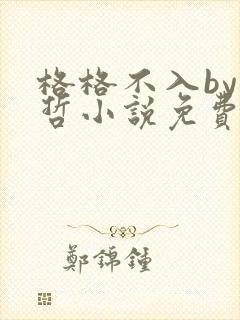 格格不入by
哲小說免費
鄭錦鐘